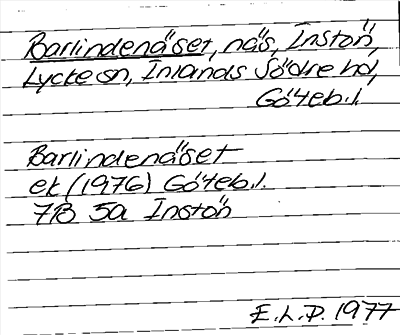 Barlindenäset, näs, Instön,
Lycke sn, Inlands Södre hd,
Göteb.l.
Barlindenäset
ek (1976) Göteb.l.
7B 5a Instön
E.L.P. 1977